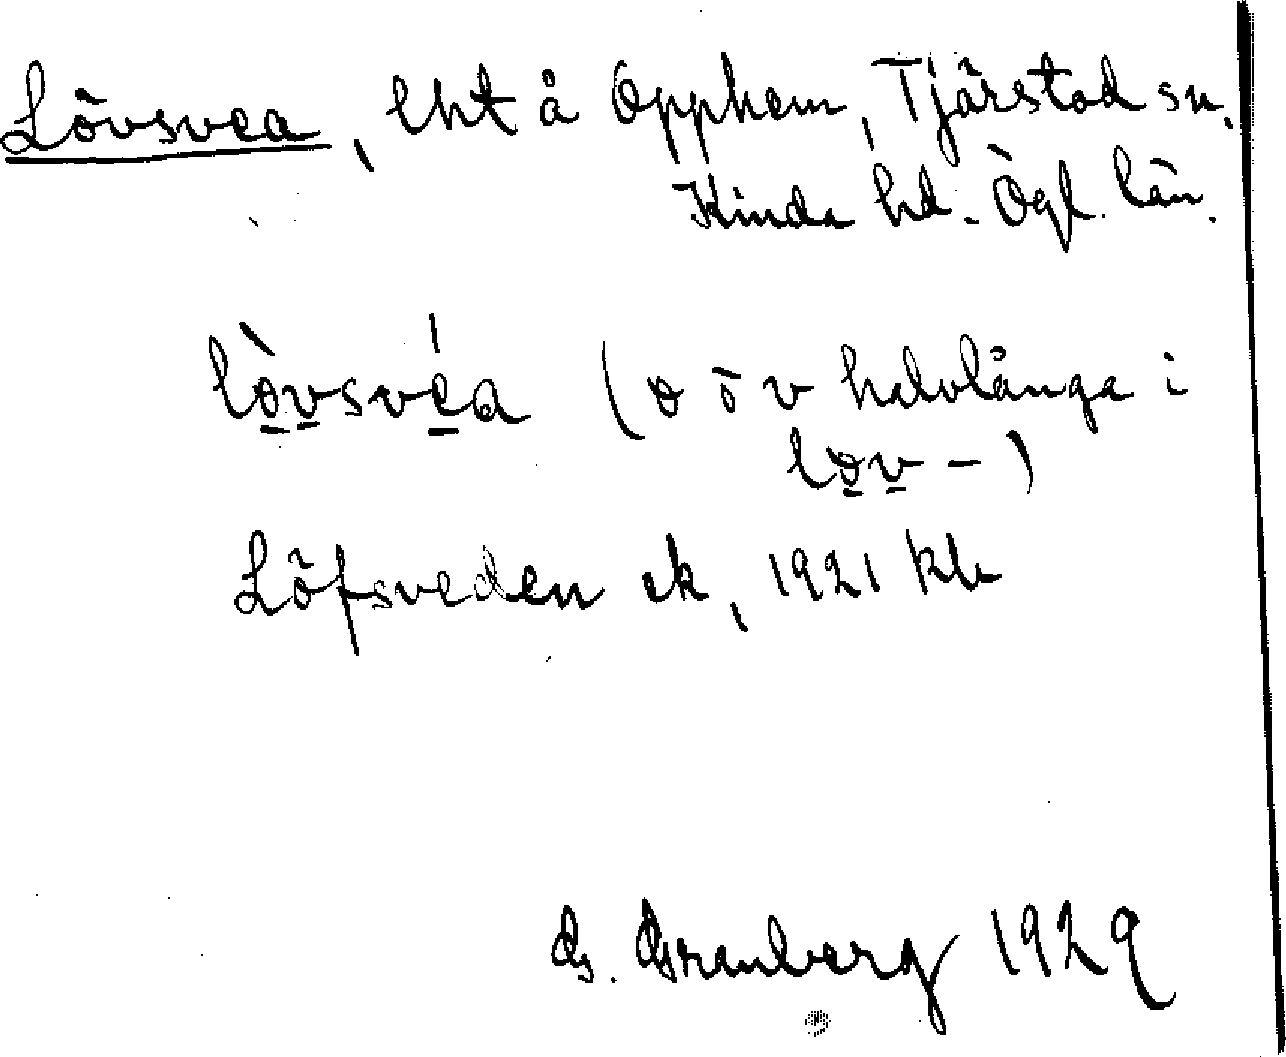 Lövsvea, lht å Opphem, Tjärstad sn.
Kinda hd. Ögl. län.
lòvsvéa (o o v halvlånga i
lov-)
Löfsveden ek, 1921 kb
G. Granberg 1929